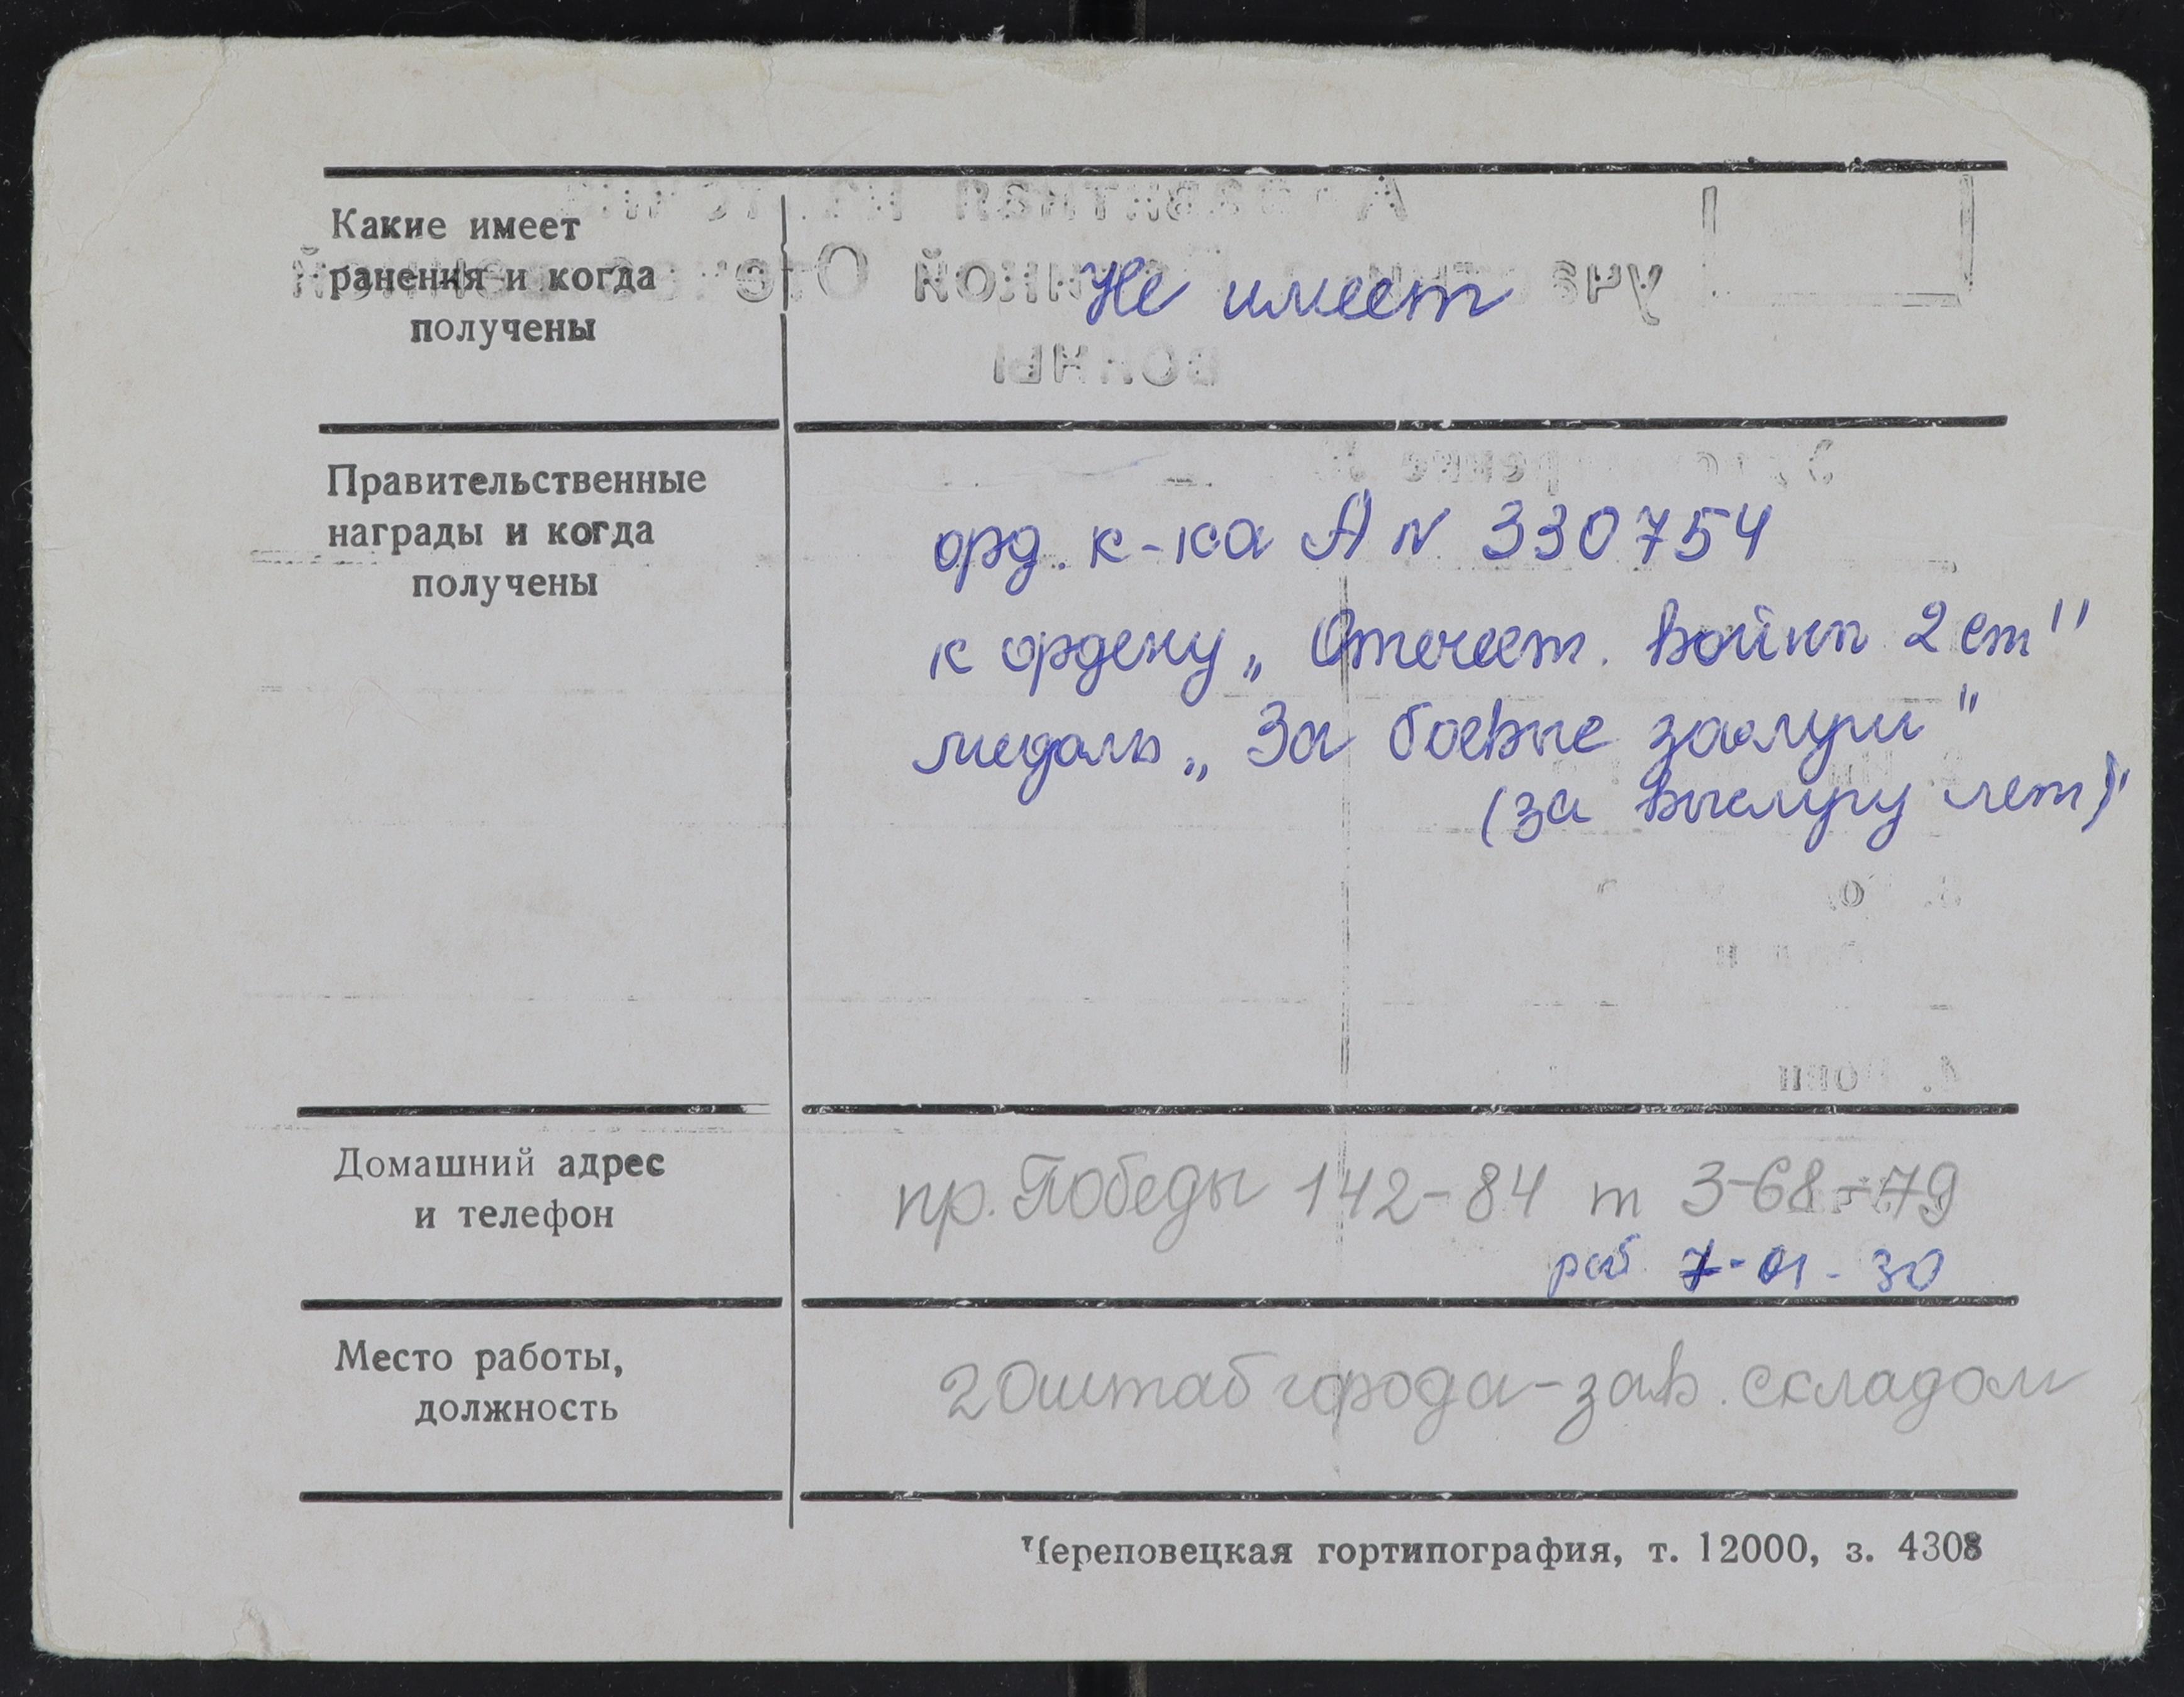 Какие имеет
ранения и когда
получены
Не имеет
Правительственные
награды и когда
получены
орд. к-ка А N 330754
к ордену „Отечест. войны 2 ст"
медаль „За боевые заслуги"
(за выслугу лет)"
Домашний адрес
и телефон
пр. Победы 142-84 т 3-68-79
раб 7-01-30
Место работы,
должность
ГОштаб города - зав. складом
Череповецкая гортипография, т. 12000, з. 4308